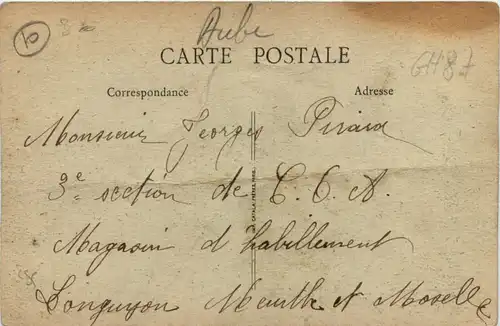 6
Aube
CARTE POSTALE
6487
Correspondance Adresse
Monsieur Georges
3e section de C. O. A.
Magasin d'habillement
Longuyon Meurthe et Moselle